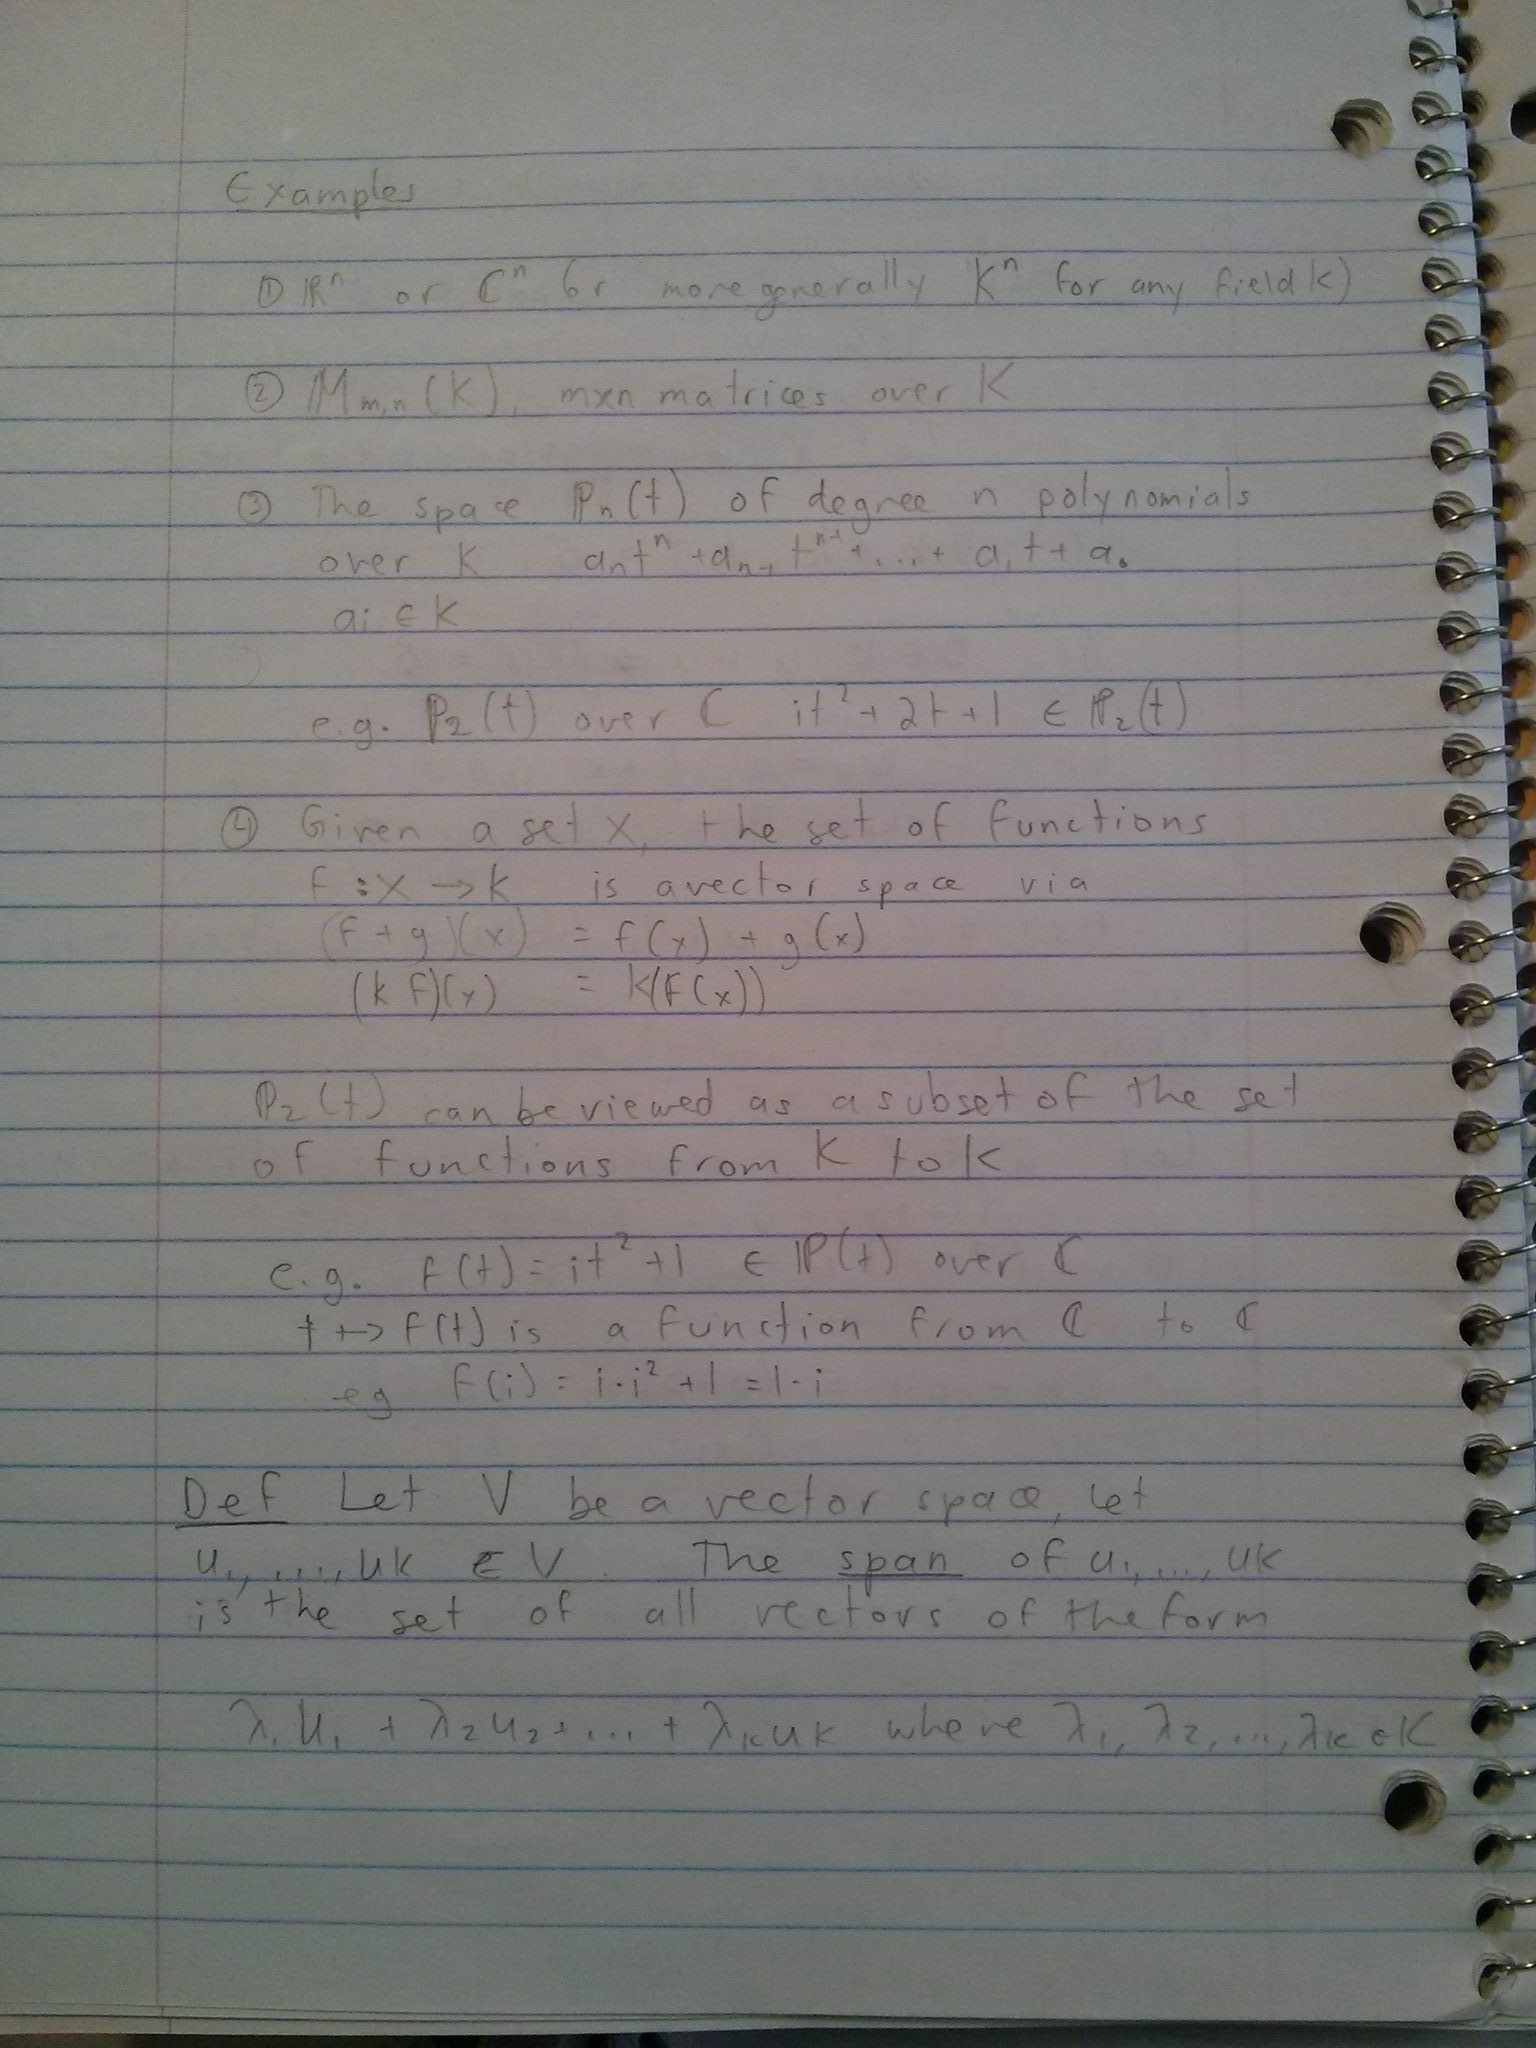 Examples
① ℝⁿ or ℂⁿ (or more generally Kⁿ for any field K)
② M m,n (K), mxn matrices over K
③ The space ℙn(t) of degree n polynomials
over K antⁿ + an-1 tⁿ⁻¹ + ... + a1 t + a0
ai ∈ K
e.g. ℙ2(t) over ℂ it² + 2t + 1 ∈ ℙ2(t)
④ Given a set X, the set of functions
f : X → K is a vector space via
(f + g)(x) = f(x) + g(x)
(k f)(x) = k(f(x))
ℙ2(t) can be viewed as a subset of the set
of functions from K to K
e.g. f(t) = it² + 1 ∈ ℙ(t) over ℂ
t ↦ f(t) is a function from ℂ to ℂ
eg f(i) = i·i² + 1 = 1-i
Def Let V be a vector space, let
u1, ..., uk ∈ V. The span of u1, ..., uk
is the set of all vectors of the form
λ1 u1 + λ2 u2 + ... + λk uk where λ1, λ2, ..., λk ∈ K